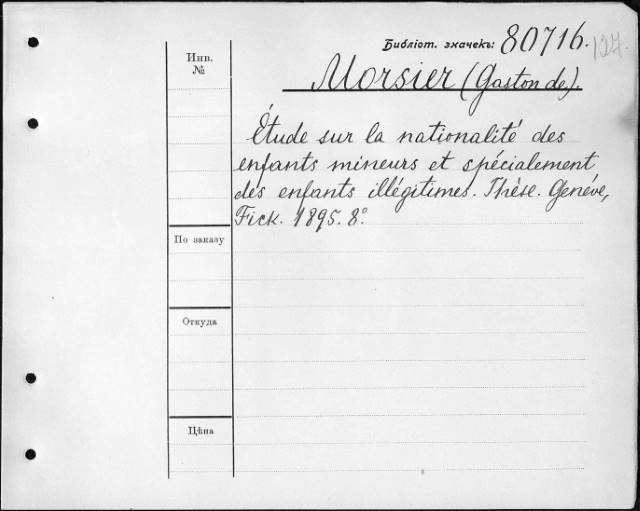 Библіот. значекъ: 80716. 127.
Инв. №
Morsier (Gaston de).
Étude sur la nationalité des
enfants mineurs et spécialement
des enfants illégitimes. Thèse. Genéve,
Fick. 1895. 8°.
По заказу
Откуда
Цѣна